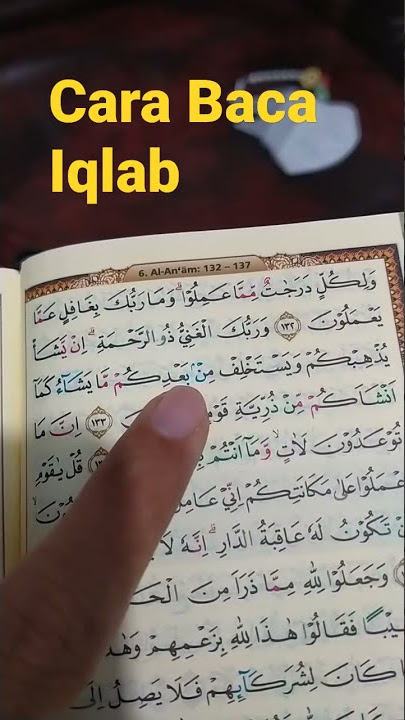 Cara Baca
Iqlab
6. Al-An'ām: 132 – 137
وَلِكُلٍّ دَرَجٰتٌ مِّمَّا عَمِلُوْاۗ وَمَا رَبُّكَ بِغَافِلٍ عَمَّا
يَعْمَلُوْنَ ۝١٣٢ وَرَبُّكَ الْغَنِيُّ ذُو الرَّحْمَةِۗ اِنْ يَّشَأْ
يُذْهِبْكُمْ وَيَسْتَخْلِفْ مِنْۢ بَعْدِكُمْ مَّا يَشَاۤءُ كَمَآ
اَنْشَاَكُمْ مِّنْ ذُرِّيَّةِ ۝١٣٣ اِنَّ مَا
تُوْعَدُوْنَ لَاٰتٍۙ وَّمَآ اَنْتُمْ قُلْ يٰقَوْمِ
اعْمَلُوْا عَلٰى مَكَانَتِكُمْ اِنِّيْ
تَكُوْنُ لَهٗ عَاقِبَةُ الدَّارِۗ اِنَّهٗ لَا
وَجَعَلُوْا لِلّٰهِ مِمَّا ذَرَاَ مِنَ
فَقَالُوْا هٰذَا لِلّٰهِ بِزَعْمِهِمْ
كَانَ لِشُرَكَاۤىِٕهِمْ فَلَا يَصِلُ اِلَى